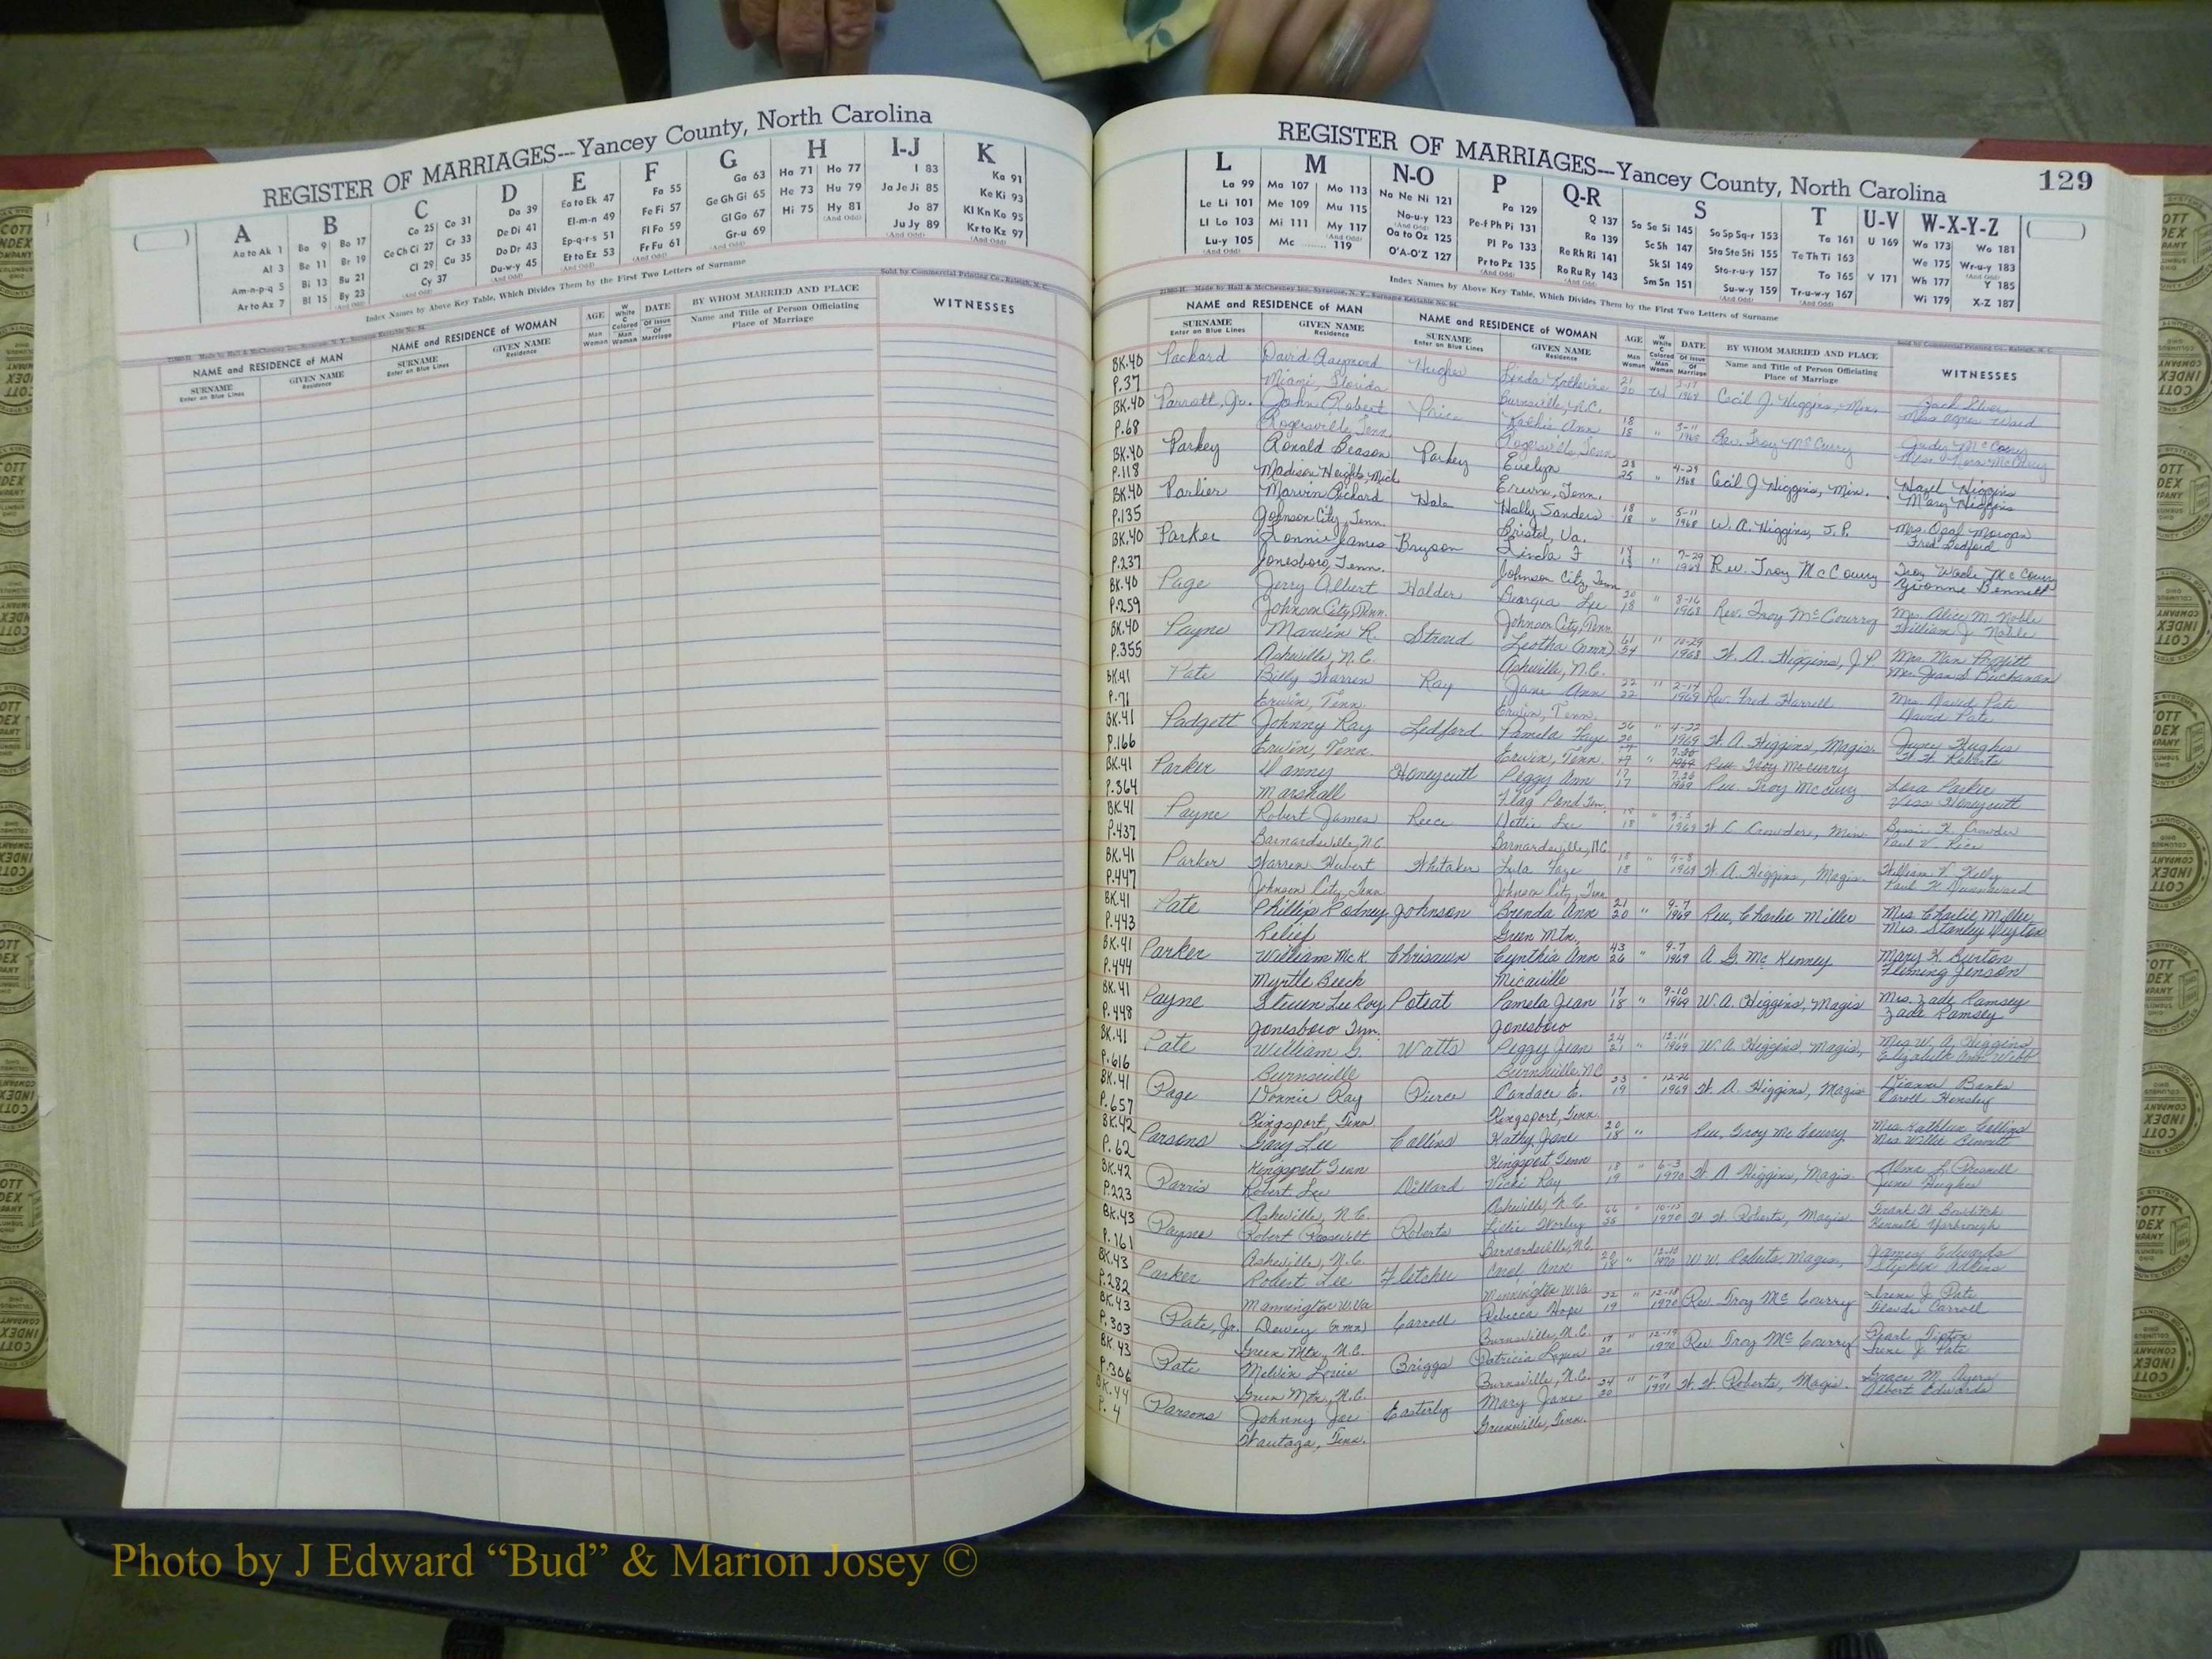 REGISTER OF MARRIAGES---Yancey County, North Carolina
A B C D E F G H I-J K
Aa to Ak 1 Ba 9 Bo 17 Ca 25 Co 31 Da 39 Ea to Ek 47 Fa 55 Ga 63 Ha 71 Ho 77 I 83 Ka 91
Al 3 Be 11 Br 19 Ce Ch Ci 27 Cr 33 De Di 41 El-m-n 49 Fe Fi 57 Ge Gh Gi 65 He 73 Hu 79 Ja Je Ji 85 Ke Ki 93
Am-n-p-q 5 Bi 13 Bu 21 Cl 29 Cu 35 Do Dr 43 Ep-q-r-s 51 Fl Fo 59 Gl Go 67 Hi 75 Hy 81 Jo 87 Kl Kn Ko 95
Ar to Az 7 Bl 15 By 23 Cy 37 Du-w-y 45 Et to Ez 53 Fr Fu 61 Gr-u 69 Ju Jy 89 Kr to Kz 97
Index Names by Above Key Table, Which Divides Them by the First Two Letters of Surname
Sold by Commercial Printing Co., Raleigh, N. C.
NAME and RESIDENCE of MAN NAME and RESIDENCE of WOMAN AGE DATE BY WHOM MARRIED AND PLACE WITNESSES
SURNAME Enter on Blue Lines GIVEN NAME Residence SURNAME Enter on Blue Lines GIVEN NAME Residence Man Woman W White C Colored Man Woman Of Issue Of Marriage Name and Title of Person Officiating Place of Marriage
REGISTER OF MARRIAGES---Yancey County, North Carolina 129
L M N-O P Q-R S T U-V W-X-Y-Z
La 99 Ma 107 Mo 113 Na Ne Ni 121 Pa 129 Q 137 Sa Se Si 145 So Sp Sq-r 153 Ta 161 U 169 Wa 173 Wo 181
Le Li 101 Me 109 Mu 115 No-u-y 123 Pe-f Ph Pi 131 Ra 139 Sc Sh 147 Sta Ste Sti 155 Te Th Ti 163 We 175 Wr-u-y 183
Ll Lo 103 Mi 111 My 117 Oa to Oz 125 Pl Po 133 Re Rh Ri 141 Sk Sl 149 Sto-r-u-y 157 To 165 V 171 Wh 177 Y 185
Lu-y 105 Mc 119 O'A-O'Z 127 Pr to Pz 135 Ro Ru Ry 143 Sm Sn 151 Su-w-y 159 Tr-u-w-y 167 Wi 179 X-Z 187
Index Names by Above Key Table, Which Divides Them by the First Two Letters of Surname
NAME and RESIDENCE of MAN NAME and RESIDENCE of WOMAN AGE DATE BY WHOM MARRIED AND PLACE WITNESSES
SURNAME Enter on Blue Lines GIVEN NAME Residence SURNAME Enter on Blue Lines GIVEN NAME Residence Man Woman W White C Colored Man Woman Of Issue Of Marriage Name and Title of Person Officiating Place of Marriage
BK.40 Packard David Raymond Hughes Linda Katherine 21 20 W 1968 Cecil J. Higgins, Min. Zack Silver
P.37 Miami, Florida Burnsville, N.C. Mrs. Agnes Ward
BK.40 Parrott, Jr. John Robert Price Kathie Ann 18 18 " 3-11 1968 Rev. Troy McCurry Judy McCoury
P.68 Rogersville, Tenn. Rogersville, Tenn.
BK.40 Parkey Ronald Beason Parkey Evelyn 25 " 4-29 1968 Cecil J Higgins, Min. Hazel Higgins
P.118 Madison Heights, Mich. Erwin, Tenn. Mary Higgins
BK.40 Parlier Marvin Richard Hale Holly Sanders 18 18 " 5-11 1968 W. A. Higgins, J.P. Mrs. Opal Morgan
P.135 Johnson City, Tenn. Bristol, Va. Fred Ledford
BK.40 Parker Lonnie James Bryson Linda F " 7-29 1968 Rev. Troy McCoury Troy Wade McCoury
P.237 Jonesboro, Tenn. Johnson City, Tenn Yvonne Bennett
BK.40 Page Jerry Albert Holder Georgia Lee 20 18 " 8-16 1968 Rev. Troy McCourry Mrs. Alice M. Noble
P.259 Johnson City, Tenn. Johnson City, Tenn. William J. Noble
BK.40 Payne Marvin R. Stroud Leotha (nmn) 61 54 " 10-29 1968 W. A. Higgins, J.P. Mrs. Nan Proffitt
P.355 Asheville, N.C. Asheville, N.C. Mrs. Jean S. Buchanan
BK.41 Pate Billy Warren Ray Jane Ann 22 22 " 2-14 1969 Rev. Fred Harrell Mrs. David Pate
P.71 Erwin, Tenn. Erwin, Tenn. David Pate
BK.41 Padgett Johnny Ray Ledford Pamela Faye 26 20 " 4-22 1969 W. A. Higgins, Magis. June Hughes
P.166 Erwin, Tenn. Erwin, Tenn. 7-20 1969 Rev. Troy McCurry W. W. Roberts
BK.41 Parker Danny Honeycutt Peggy Ann 17 17 7-26 1969 Rev. Troy McCurry Lora Parker
P.364 Marshall Flag Pond Tenn. Honeycutt
BK.41 Payne Robert James Reece Dottie Lee 18 " 9-5 1969 W C Crowder, Min. W. Crowder
P.437 Barnardsville, N.C. Barnardsville, N.C. Paul V. Rice
BK.41 Parker Warren Hubert Whitaker Lula Faye 18 18 " 9-8 1969 W. A. Higgins, Magis. William L. Kelly
P.447 Johnson City, Tenn Johnson City, Tenn
BK.41 Pate Phillip Rodney Johnson Brenda Ann 21 20 " 9-7 1969 Rev. Charlie Miller Mrs. Charlie Miller
P.443 Relief Green Mtn. Mrs. Stanley Deyton
BK.41 Parker William McK Chrisawn Cynthia Ann 43 26 " 9-7 1969 A. G. McKenney Mary K. Burton
P.444 Myrtle Beach Micaville Fleming Jenson
BK.41 Payne Steven Lee Roy Poteat Pamela Jean 17 18 " 9-10 1969 W. A. Higgins, Magis Mrs. Zade Ramsey
P.448 Jonesboro Tenn. Jonesboro Zade Ramsey
BK.41 Pate William G. Watts Peggy Jean 24 21 " 12-11 1969 W. A. Higgins, Magis, Mrs. W. A. Higgins
P.616 Burnsville Burnsville, N.C Elizabeth Ann Webb
BK.41 Page Donnie Ray Pierce Candace E. 23 19 " 12-26 1969 W. A. Higgins, Magis Dianne Banks
P.657 Kingsport, Tenn Kingsport, Tenn. Caroll Hensley
BK.42 Parsons Gary Lee Collins Kathy Jane 20 18 " Rev. Troy McCoury Mrs. Kathleen Collins
P.62 Kingsport Tenn Kingsport Tenn Mrs. Willie Bennett
BK.42 Parris Robert Lee Dillard Vicki Kay 18 19 " 6-3 1970 W. A. Higgins, Magis. Alma L. Presnell
P.223 Asheville, N.C. Asheville, N.C. June Hughes
BK.43 Payne Robert Roosevelt Roberts Lillie Worley 66 " 10-15 1970 W. W. Roberts, Magis. Frank W. Bowditch
P.161 Asheville, N.C. Barnardsville, N.C. Kenneth Yarbrough
BK.43 Parker Robert Lee Fletcher Carol Ann 20 18 " 12-10 1970 W. W. Roberts, Magis, James Edwards
P.282 Mannington W.Va Mannington W.Va Stephen Adkins
BK.43 Pate, Jr. Dewey (nmn) Carroll Rebecca Hope 22 19 " 12-18 1970 Rev. Troy McCourry Irene J. Pate
P.303 Green Mtn., N.C. Burnsville, N.C. Carroll
BK.43 Pate Melvin Louie Briggs Patricia 19 20 " 12-19 1970 Rev. Troy McCourry Pearl Tipton
P.306 Green Mtn., N.C. Burnsville, N.C. Irene J. Pate
BK.44 Parsons Johnny Joe Easterly Mary Jane 24 20 " 1-9 1971 W. W. Roberts, Magis. Grace M. Ayers
P. 4 Watauga, Tenn. Greeneville, Tenn. Albert Edwards
Photo by J Edward “Bud” & Marion Josey ©